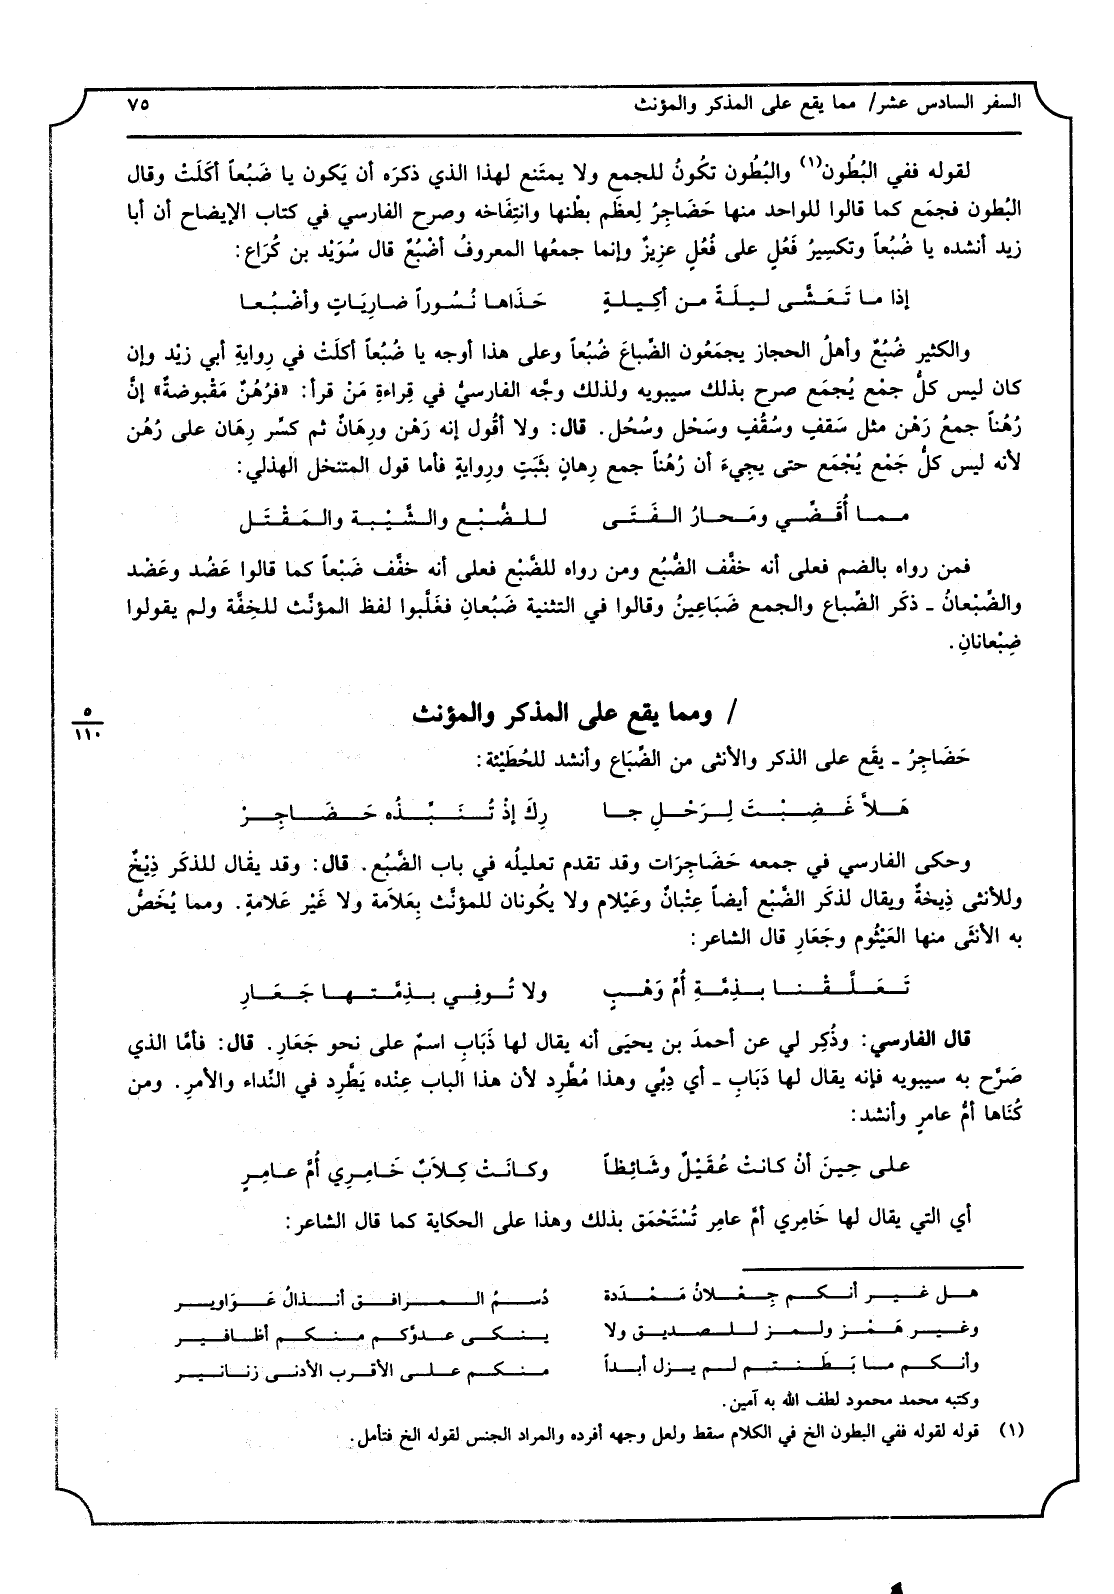 السفر السادس عشر/ مما يقع على المذكر والمؤنث ٧٥
لقوله ففي البُطُون(١) والبُطُون تكُونُ للجمع ولا يمتَنع لهذا الذي ذكرَه أن يَكون يا ضَبُعاً أكَلَتْ وقال
البُطون فجمَع كما قالوا للواحد منها حَضَاجِرُ لِعظَم بطْنها وانتِفَاخه وصرح الفارسي في كتاب الإيضاح أن أبا
زيد أنشده يا ضُبُعاً وتكسِيرُ فَعُلٍ على فُعُلٍ عزيزٌ وإنما جمعُها المعروفُ أضْبُعٌ قال سُوَيْد بن كُرَاع:
إذا ما تَعَشَّى ليلَةً من أكِيلةٍ حَذَاها نُسُوراً ضارِيَاتٍ وأضْبُعا
والكثير ضُبُعٌ وأهلُ الحجاز يجمَعُون الضِّباعَ ضُبُعاً وعلى هذا أوجه يا ضُبُعاً أكلَتْ في رِوايةِ أبي زيْد وإن
كان ليس كلُّ جمْع يُجمَع صرح بذلك سيبويه ولذلك وجَّه الفارسيُّ في قِراءةِ مَنْ قرأ: «فرُهُنٌ مَقْبوضةٌ» إنَّ
رُهُناً جمعُ رَهْن مثل سَقفٍ وسُقُفٍ وسَحْل وسُحُل. قال: ولا أقُول إنه رَهْن ورِهانٌ ثم كسَّر رِهَان على رُهُن
لأنه ليس كلُّ جَمْع يُجْمَع حتى يجِيءَ أن رُهُناً جمع رِهانٍ بثَبَتٍ ورِوايةٍ فأما قول المتنخل الهذلي:
مما أُقَضِّي ومَحارُ الفَتَى للضُّبْع والشَّيْبة والمَقْتَل
فمن رواه بالضم فعلى أنه خفَّف الضُّبُع ومن رواه للضَّبْع فعلى أنه خفَّف ضَبُعاً كما قالوا عَضُد وعَضْد
والضِّبْعانُ ـ ذكَر الضِّباع والجمع ضَبَاعِينُ وقالوا في التثنية ضَبُعانِ فغَلَّبوا لفظ المؤنَّث للخِفَّة ولم يقولوا
ضِبْعانانِ.
/ ومما يقع على المذكر والمؤنث
٥
١١٠
حَضَاجِرُ ـ يقَع على الذكر والأنثى من الضِّبَاع وأنشد للحُطَيْئة:
هَلاَّ غَضِبْتَ لِرَحْلِ جا رِكَ إذْ تُنَبِّذُه حَضَاجِرْ
وحكى الفارسي في جمعه حَضَاجِرَات وقد تقدم تعليلُه في باب الضَّبُع. قال: وقد يقُال للذكَر ذِيْخٌ
وللأنثى ذِيخةٌ ويقال لذكَر الضَّبْع أيضاً عِتْبانٌ وعَيْلام ولا يكُونان للمؤنَّث بِعَلاَمة ولا غَيْر عَلامةٍ. ومما يُخَصُّ
به الأنثَى منها العَيْثُوم وجَعَارِ قال الشاعر:
تَعَلَّقْنا بذِمَّةِ أُمِّ وَهْبٍ ولا تُوفِي بذِمَّتها جَعَارِ
قال الفارسي: وذُكِر لي عن أحمدَ بن يحيَى أنه يقال لها ذَبَابِ اسمٌ على نحو جَعَارِ. قال: فأمَّا الذي
صَرَّح به سيبويه فإنه يقال لها دَبَابِ ـ أي دِبِّي وهذا مُطَّرِد لأن هذا الباب عِنْده يَطَّرِد في النِّداء والأمرِ. ومن
كُنَاها أمُّ عامرٍ وأنشد:
على حِينَ أنْ كانتْ عُقَيْلٌ وشَائِظاً وكانَتْ كِلاَبٌ خَامِرِي أُمَّ عامِرٍ
أي التي يقال لها خَامِري أمَّ عامِر تُسْتَحْمَق بذلك وهذا على الحكاية كما قال الشاعر:
هل غير أنكم جِعْلانُ مَمْدَدة دُسمُ المرافق أنذالُ عَوَاوير
وغير هَمْز ولمز للصديق ولا ينكى عدوَّكم منكم أظافير
وأنكم ما بَطَنتم لم يزل أبداً منكم على الأقرب الأدنى زنانير
وكتبه محمد محمود لطف الله به آمين.
(١) قوله لقوله ففي البطون الخ في الكلام سقط ولعل وجهه أفرده والمراد الجنس لقوله الخ فتأمل.